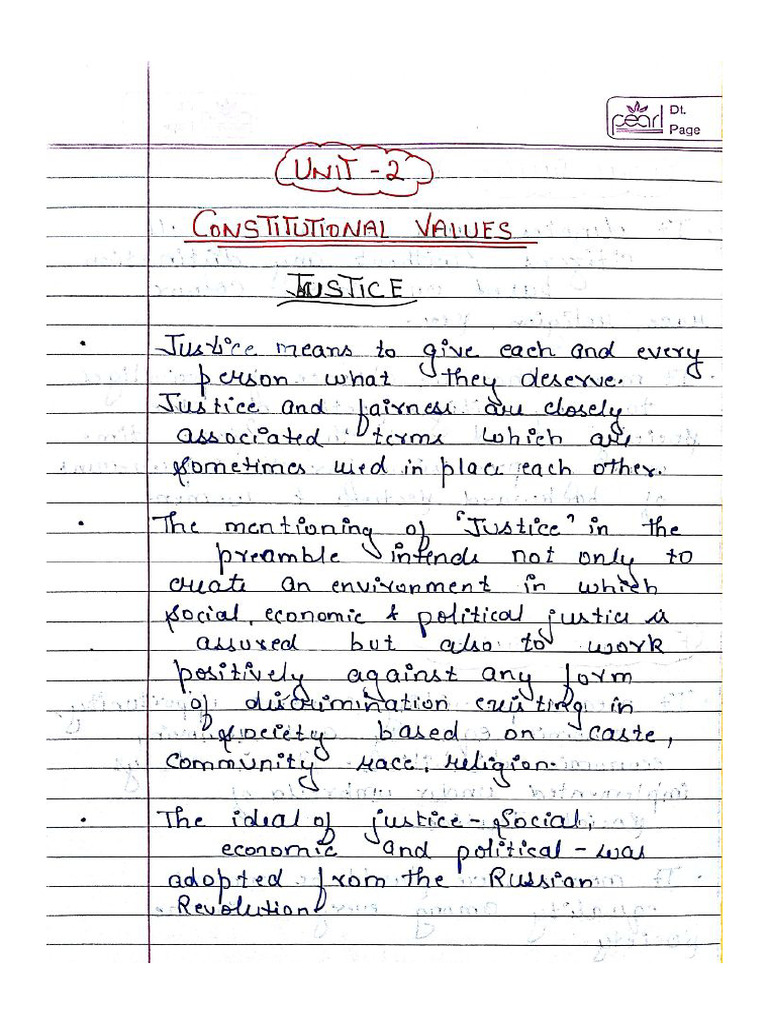 pearl
Dt.
Page
UNIT - 2
CONSTITUTIONAL VALUES
JUSTICE
• Justice means to give each and every
person what they deserve.
Justice and fairness are closely
associated terms which are
sometimes used in place each other.
• The mentioning of "Justice" in the
preamble intends not only to
create an environment in which
social, economic & political justice is
assured but also to work
positively against any form
of discrimination existing in
society based on caste,
community race, religion.
• The ideal of justice - Social,
economic and political - was
adopted from the Russian
Revolution